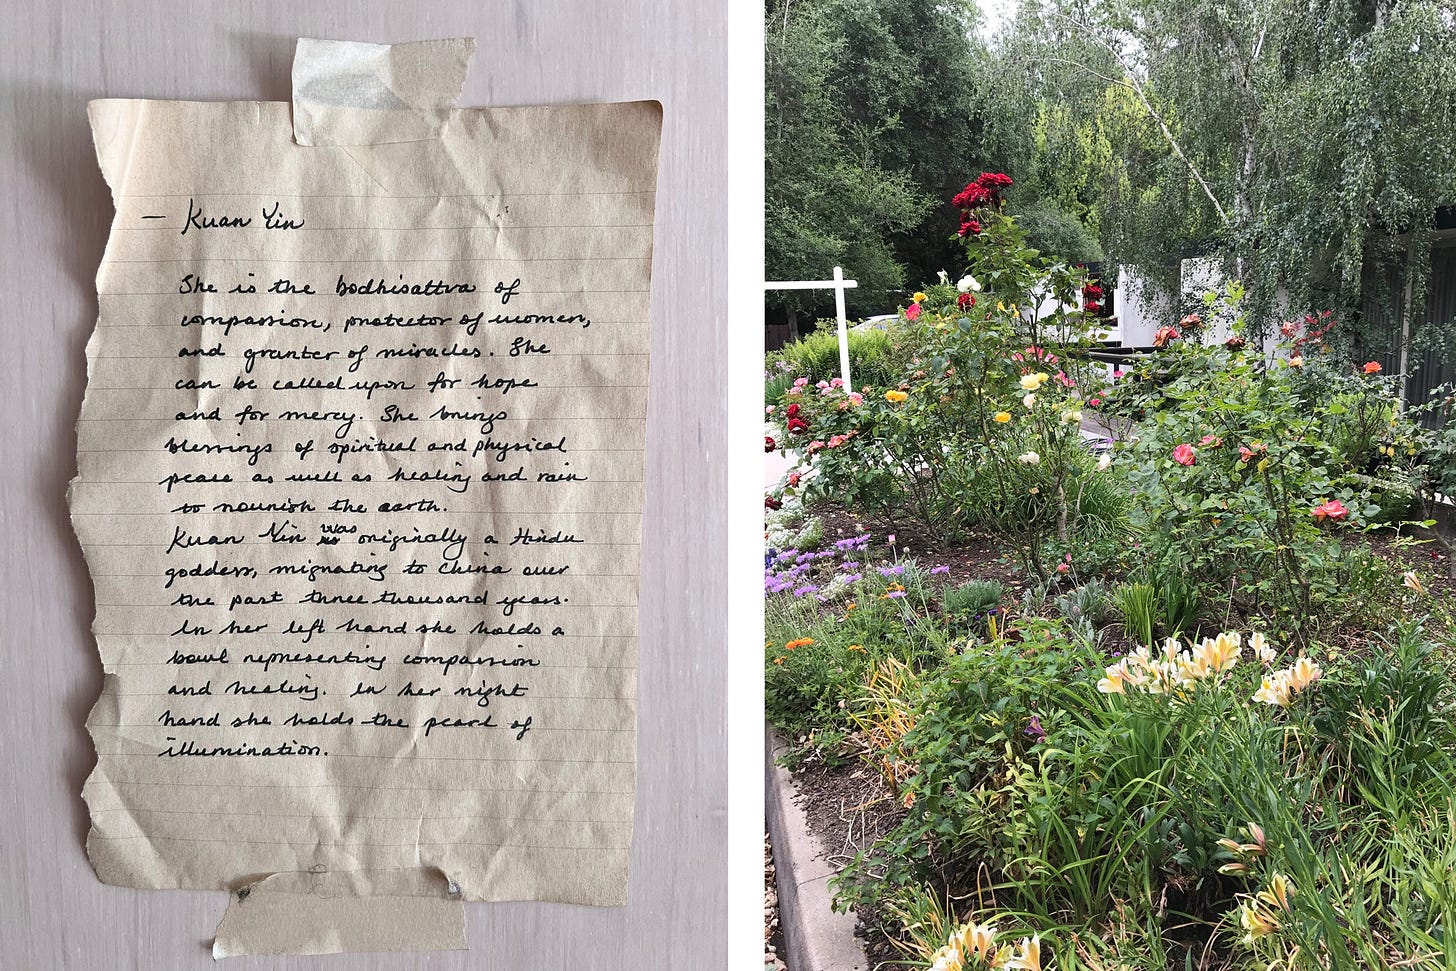 — Kuan Yin
She is the bodhisattva of
compassion, protector of women,
and granter of miracles. She
can be called upon for hope
and for mercy. She brings
blessings of spiritual and physical
peace as well as healing and rain
to nourish the earth.
Kuan Yin was originally a Hindu
goddess, migrating to China over
the past three thousand years.
In her left hand she holds a
bowl representing compassion
and healing. In her right
hand she holds the pearl of
illumination.